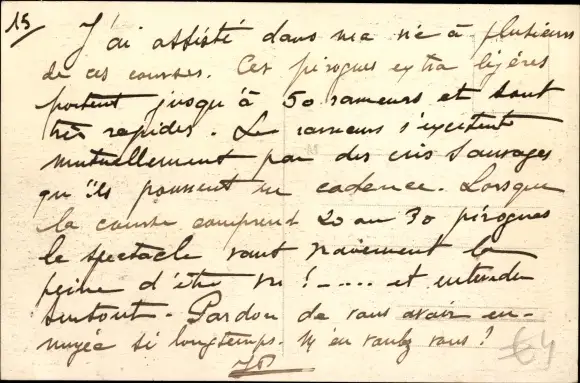 15/ J'ai assisté dans ma vie à plusieurs
de ces courses. Ces pirogues extra légères
portent jusqu'à 50 rameurs et sont
très rapides. Les rameurs s'excitent
mutuellement par des cris sauvages
qu'ils poussent en cadence. Lorsque
la course comprend 20 ou 30 pirogues
le spectacle vaut vraiment la
peine d'être vu !..... et entendu
surtout. Pardon de vous avoir en-
nuyée si longtemps. M'en voulez vous ?
€4